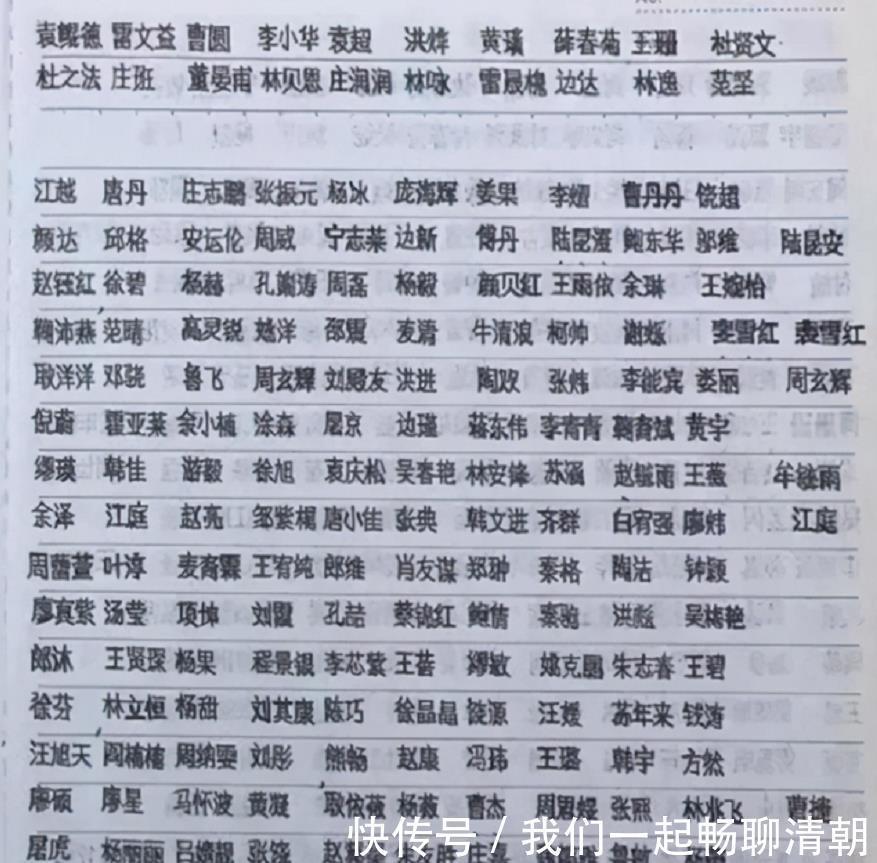 袁鲲德 雷文益 曹圆 李小华 袁超 洪烨 黄瑱 薛春菊 王珊 杜贤文
杜之法 庄班 董晏甫 林贝恩 庄润润 林咏 雷晟槐 边达 林逸 范坚
江越 唐丹 庄志鹏 张振元 杨冰 庞海辉 姜果 李婚 曹丹丹 饶超
颜达 邱格 安坛伦 周威 宁志莱 边新 傅丹 陆昆淮 鲍东华 陆昆安
赵钰红 徐碧 杨赫 孔嵛涛 周磊 杨毅 颜贝红 王雨依 余琳 王嫦怡
鞠沛燕 范晴 高灵锐 越洋 邵震 麦清 牛清浪 柯帅 谢媛 雯雪红 袁雪红
耿洋洋 邓骁 鲁飞 周玄辉 刘殿友 洪进 陶欢 张炜 李能宾 娄丽 周玄辉
倪蔚 霍亚莱 余小楠 涂森 屈京 边瑾 蒋东伟 李青青 黄宇
缪瑛 韩佳 游毅 徐旭 袁庆松 吴春艳 林安锋 苏涵 赵毓雨 王薇 牟毓雨
余泽 江庭 赵亮 邹紫棍 唐小佳 张典 韩文进 齐群 白宥强 廖炜 江庭
周蕾萱 叶淳 麦裔霖 王宥纯 郎维 肖友谋 郑珅 秦格 陶沽 钟颖
廖真紫 汤莹 项悚 刘霞 孔喆 蔡锦红 黄倩 秦驰 洪彪 吴梅艳
郎沐 王贤琛 杨果 程景银 李芯萦 王荟 缪敏 郑克鹏 朱志春 王碧
徐芬 林立恒 杨甜 刘其康 陈巧 徐晶晶 饶源 汪媛 苏年来 钱涛
汪旭天 阎楠楠 周纳雯 刘彤 熊畅 赵康 冯玮 王璐 韩宇 方然
廖硕 廖星 马怀波 黄凝 耿依蓓 杨薇 曹杰 张燕 林兆飞
屈虎 杨丽丽 吕嬗靓 张饶
快传号 / 我们一起畅聊清朝